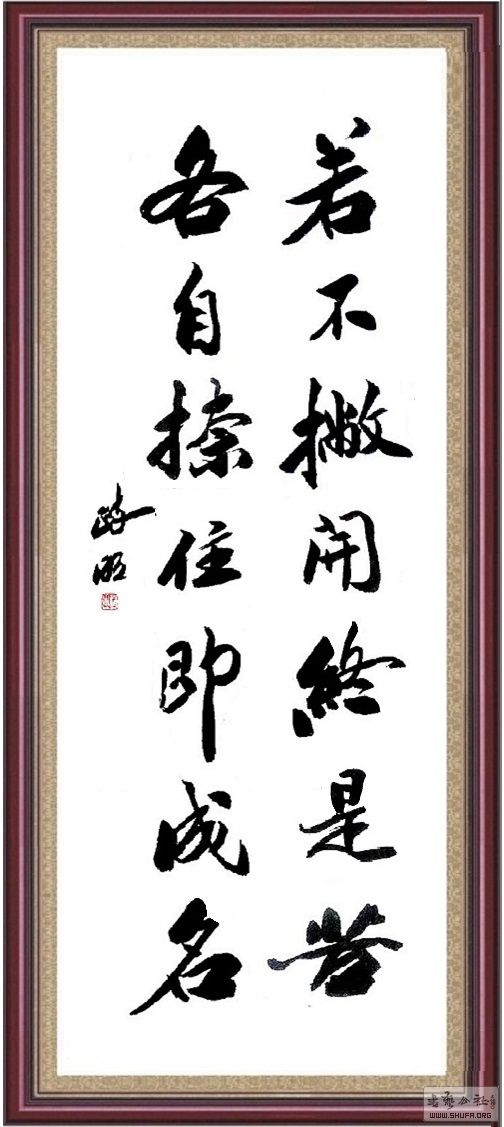 若不撇開終是苦
各自捺住即成名
書藝公社
WWW.SHUFA.ORG